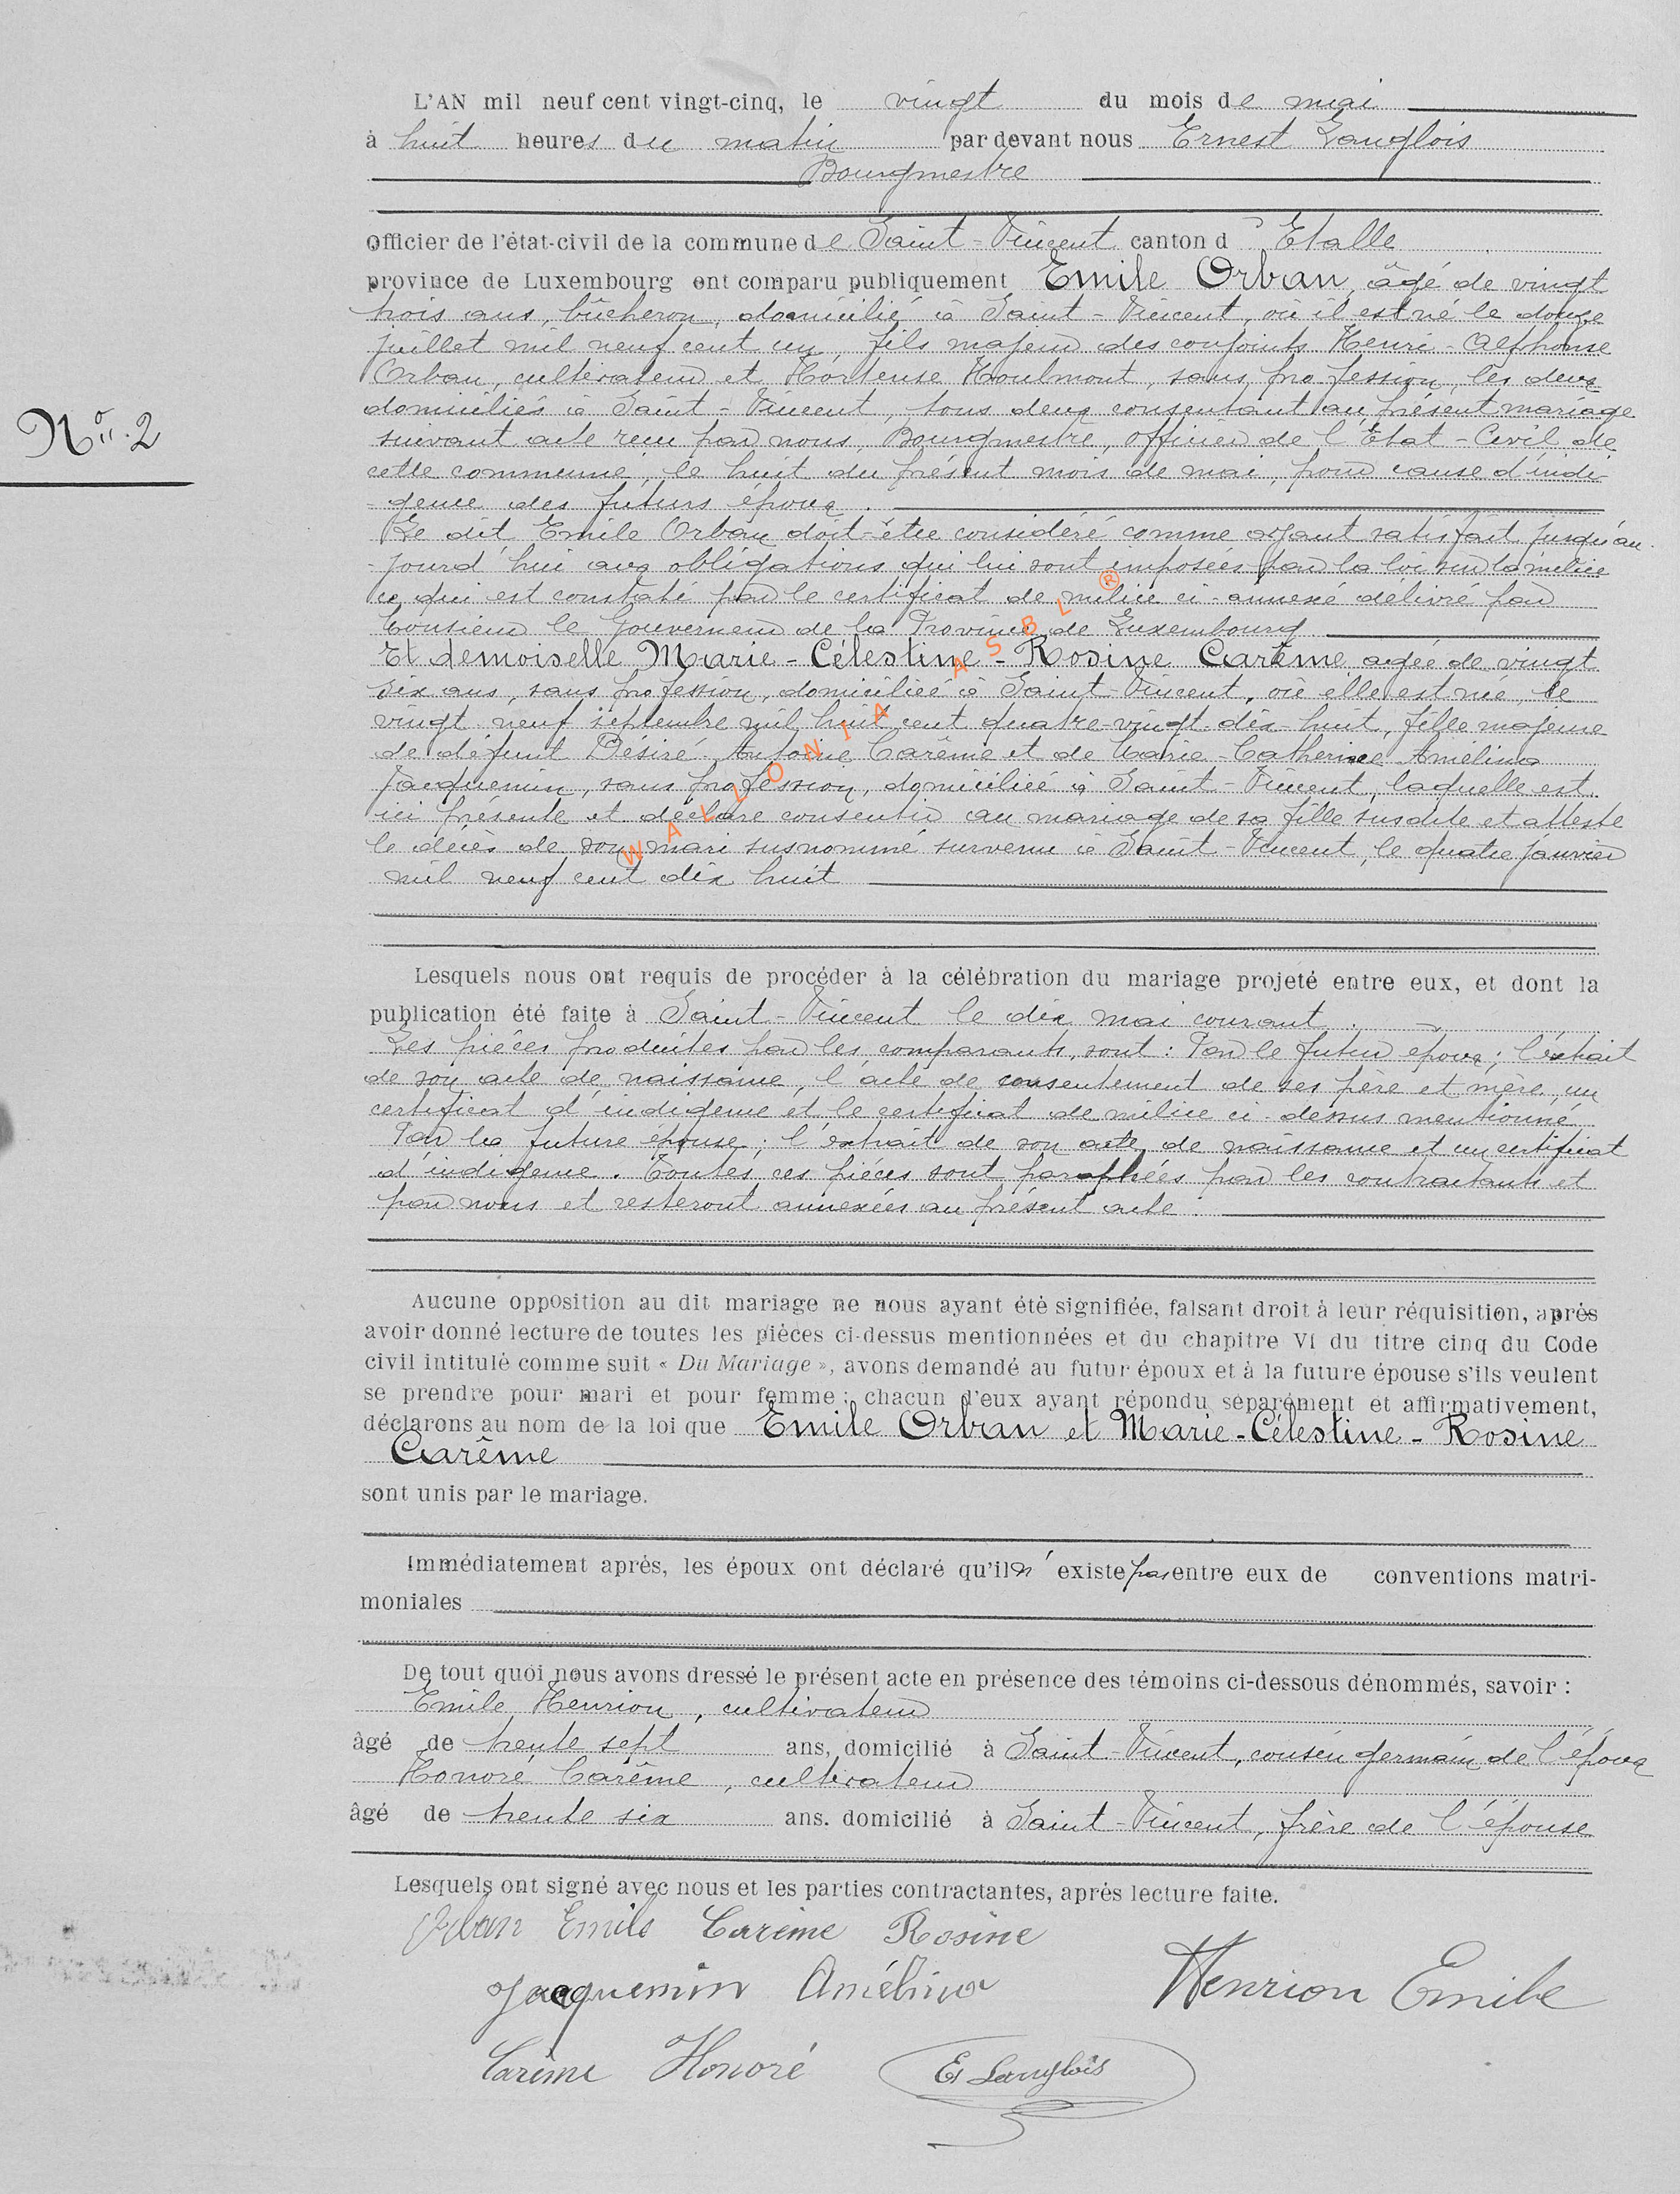 L'AN mil neuf cent vingt-cinq, le vingt du mois de mai
à huit heures du matin par devant nous Ernest Langlois
Bourgmestre
Officier de l'état-civil de la commune de Saint-Vincent canton d'Etalle
province de Luxembourg ont comparu publiquement Emile Orban, âgé de vingt
trois ans, bûcheron, domicilié à Saint-Vincent, où il est né le douze
juillet mil neuf cent un, fils majeur des conjoints Henri-Alphonse
Orban, cultivateur et Hortense Houlmont, sans profession, les deux
domiciliés à Saint-Vincent, tous deux consentant au présent mariage
suivant acte reçu par nous, Bourgmestre, officier de l'Etat-Civil de
N° 2
cette commune, le huit du présent mois de mai, pour cause d'indi-
-gence des futurs époux.
Le dit Emile Orban doit-être considéré comme ayant satisfait jusqu'au-
-jourd'hui aux obligations qui lui sont imposées par la loi sur la milice
ce qui est constaté par le certificat de milice ci-annexé délivré par
Monsieur le Gouverneur de la Province de Luxembourg
Et demoiselle Marie-Célestine-Rosine Carême, agée de vingt
six ans, sans profession, domiciliée à Saint-Vincent, où elle est née, le
vingt neuf septembre mil huit cent quatre-vingt-dix-huit, fille majeure
de défunt Désiré-Antoine Carême et de Marie-Catherine Amélina
Jacquemin, sans profession, domiciliée à Saint-Vincent, laquelle est
ici présente et déclare consentir au mariage de sa fille susdite et atteste
le décès de son mari susnommé survenu à Saint-Vincent, le quatre janvier
mil neuf cent dix huit
WALLONIA ASBL ®
Lesquels nous ont requis de procéder à la célébration du mariage projeté entre eux, et dont la
publication été faite à Saint-Vincent le dix mai courant.
Les pièces produites par les comparants, sont : Par le futur époux; l'extrait
de son acte de naissance, l'acte de consentement de ses père et mère, un
certificat d'indigence et le certificat de milice ci-dessus mentionné
Par la future épouse; l'extrait de son acte de naissance et un certificat
d'indigence. Toutes ces pièces sont paraphées par les contractants et
par nous et resteront annexées au présent acte.
Aucune opposition au dit mariage ne nous ayant été signifiée, faisant droit à leur réquisition, après
avoir donné lecture de toutes les pièces ci-dessus mentionnées et du chapitre VI du titre cinq du Code
civil intitulé comme suit « Du Mariage », avons demandé au futur époux et à la future épouse s'ils veulent
se prendre pour mari et pour femme; chacun d'eux ayant répondu séparément et affirmativement,
déclarons au nom de la loi que Emile Orban et Marie-Célestine-Rosine
Carême
sont unis par le mariage.
Immédiatement après, les époux ont déclaré qu'il n'existe pas entre eux de conventions matri-
moniales
De tout quoi nous avons dressé le présent acte en présence des témoins ci-dessous dénommés, savoir :
Emile Henrion, cultivateur
âgé de trente sept ans, domicilié à Saint-Vincent, cousin germain de l'époux
Honoré Carême, cultivateur
âgé de trente six ans. domicilié à Saint-Vincent, frère de l'épouse
Lesquels ont signé avec nous et les parties contractantes, après lecture faite.
Orban Emile Carême Rosine
Jacquemin Amélina Henrion Emile
Carême Honoré Et Langlois